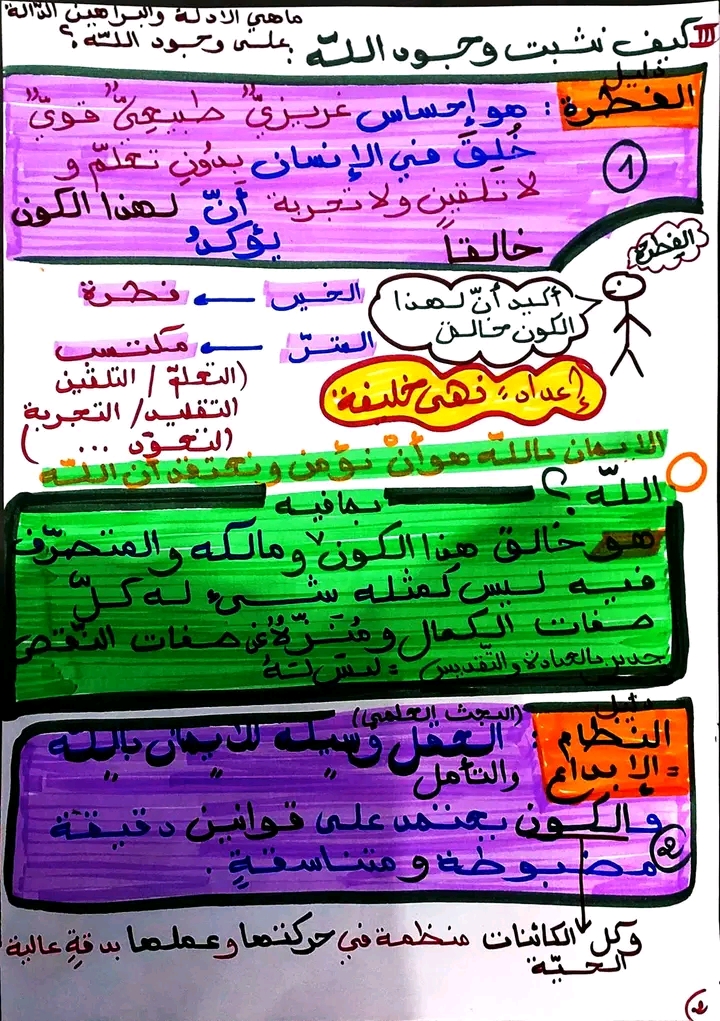 ماهي الادلة والبراهين الدّالة
على وجود اللّه؟
III كيف نثبت وجود اللّه
دليل
الفطرة : هو إحساس غريزيّ" طبيعيّ" قويّ"
1 خُلِقَ في الإنسان بدُونِ تعلّم و
لا تلقين ولا تجربة أنّ لهذا الكون
خالقاً يؤكدُ
الفطرة
أكيد أنّ لهذا
الكون خالق
الخير ← فطرة
الشرّ ← مكتسب
(التعلّم / التلقين
التقليد / التجربة
التعوّد ... )
إعداد : نهى خليفة
الايمان باللّه هو أنْ نؤمن ونعتقد أن اللّه
اللّه ؟
بما فيه
هو خالق هذا الكون ومالكه والمتصرّف
فيه ليس كمثله شيء له كلّ
صفات الكمال ومُنَزّهٌ عن صفات النّقص
جدير بالعبادة والتّقديس = ليسَ لهُ
دليل
النظام : (البحث العلمي) العقل وسيلة للايمان باللّه
= الإبداع والتأمل
2 والكون يعتمد على قوانين دقيقة
مضبوطة و متناسقةٍ .
وكل الكائنات منظمة في حركتها وعملها بدقةٍ عالية
الحيّة
2